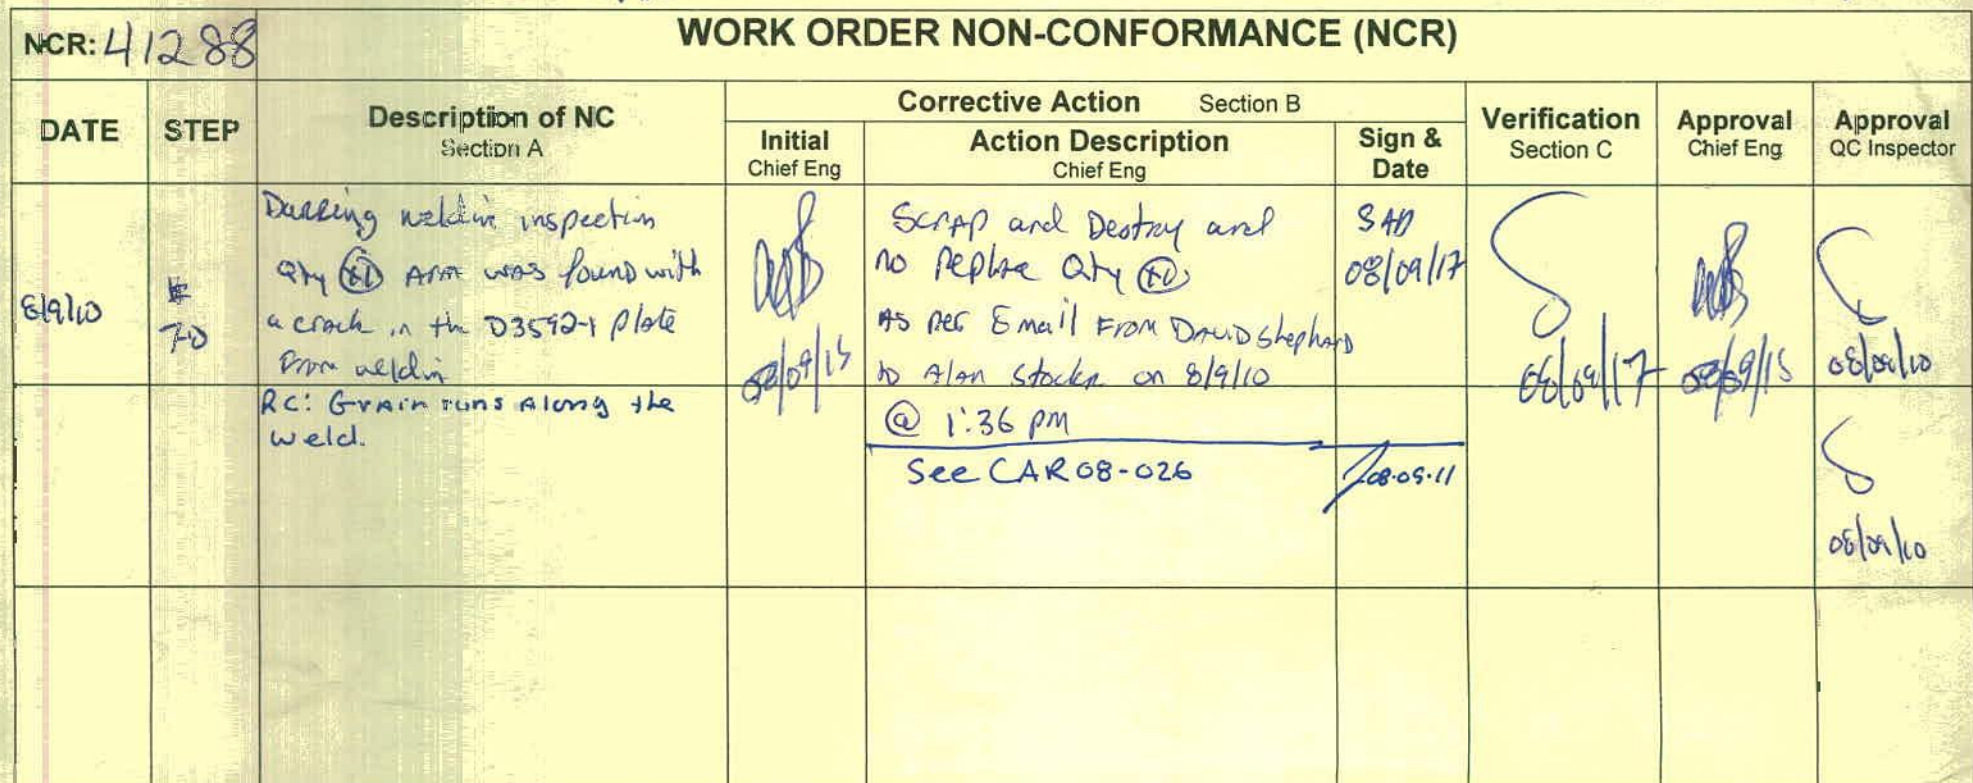 NCR: 41288
WORK ORDER NON-CONFORMANCE (NCR)
DATE
STEP
Description of NC
Section A
Corrective Action Section B
Initial
Chief Eng
Action Description
Chief Eng
Sign &
Date
Verification
Section C
Approval
Chief Eng
Approval
QC Inspector
8/9/10
70
Durring weldin inspection
Qty (x1) Arm was found with
a crack in the D3592-1 plate
From weldin
08/09/15
Scrap and Destroy and
no Replace Qty (x1)
As per Email From David Shephard
to Alan Stocker on 8/9/10
@ 1:36 pm
SAD
08/09/17
08/09/17
08/09/15
08/09/10
RC: Grain runs Along the
weld.
See CAR 08-026
08.09.11
08/09/10